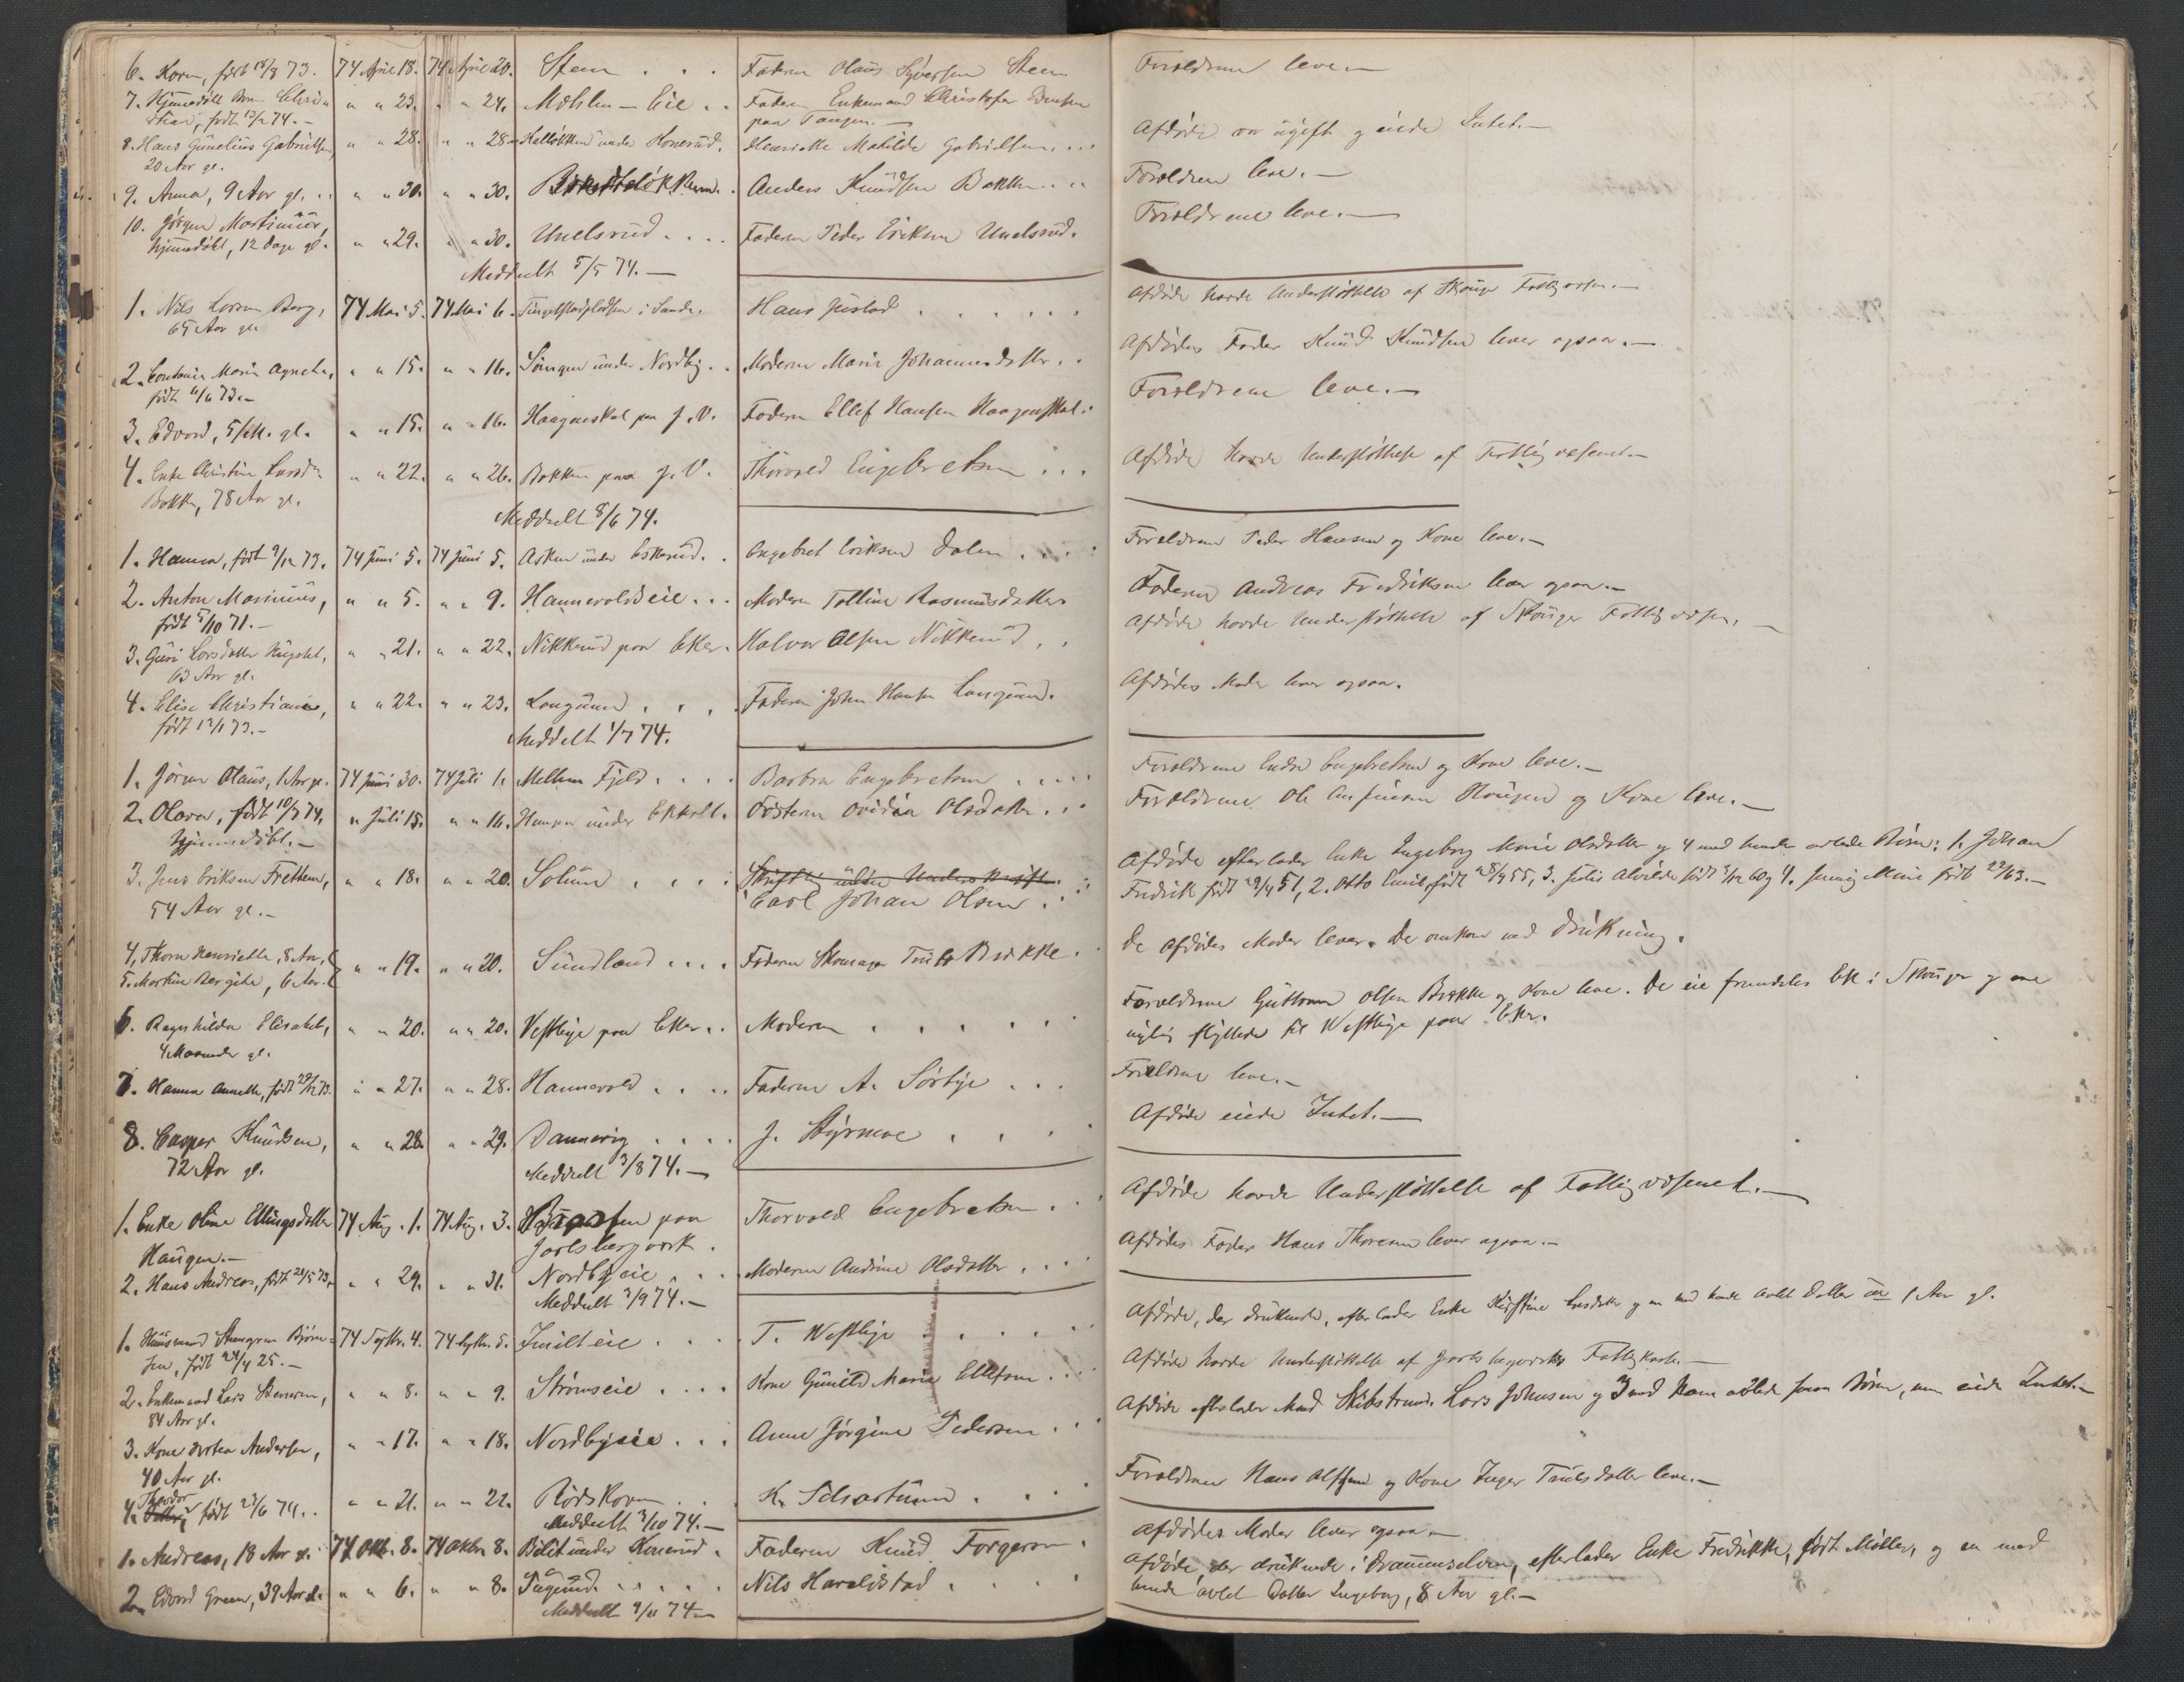 6. Karen, født 18/8 73. 74 April 18. 74 April 20. Steen . . . Faderen Olaus Syversen Steen Forældrene leve.—
7. Hjemmedøbt Barn Chris- " " 23. " " 24. Møhlen-Eie . . Faderen Enkemand Christofer
stian, født 13/2 74.— paa Tangen.—
8. Hans Gunelius Gabrielsen, " " 28. " " 28. under Konerud. Henriette Mathilde Gabrielsen . . . Afdøde var ugift og eiede Intet.—
20 Aar gl.
9. Anna, 9 Aar gl. . . " " 30. " " 30. Anders Knudsen Bakken . . . Forældrene leve.—
10. Jørgen Martinius, " " 29. " " 30. Unelsrud . . . . Faderen Peder Eriksen Unelsrud. Forældrene leve.—
hjemmedøbt, 12 Dage gl.
Meddeelt 5/5 74.—
1. Nils Larsen Berg, 74 Mai 5. 74 Mai 6. i Sande. Hans Justad . . . . . . Afdøde havde Understøttelse af Skouger Fattigvæsen.—
65 Aar gl.
2. Constance Marie Agnethe, " " 15. " " 16. under Nordby . . Moderen Marie Johannesdatter . . Afdødes Fader Knud Knudsen lever ogsaa.—
født 11/6 73.—
3. Edvard, 5/4 gl. " " 15. " " 16. Haagenskal paa J. V. Faderen Ellef Hansen Haagenskal. Forældrene leve.—
4. Enke Christine Larsd. " " 22. " " 26. Bakken paa J. V. Thorvald Engebretsen . . . Afdøde havde Understøttelse af Fattigvæsenet.—
Bakken, 78 Aar gl.
Meddeelt 8/6 74.
1. Hanna, født 9/12 73. 74 Juni 5. 74 Juni 5. Asken under Eskerud. . Engebret Eriksen Dalen . . . . Forældrene Peder Hansen og Kone leve.—
2. Anton Marinius, " " 5. " " 9. Hannevoldseie . . . Moderen Talline Rasmusdatter Faderen Andreas Fredriksen lever ogsaa.—
født 5/10 71.—
3. Guri Larsdatter " " 21. " " 22. Nikkerud paa Eker. Halvor Olsen Nikkerud . . Afdøde havde Understøttelse af Skouger Fattigvæsen.—
63 Aar gl.
4. Elise Christiane, " " 22. " " 23. Langum . . . . Faderen Johan Hansen Langum. Afdødes Moder lever ogsaa.
født 12/1 73.—
Meddeelt 1/7 74.
1. Jørgen Olaus, 1 Aar gl. 74 Juni 30. 74 Juli 1. Mellem Fjeld . . . . Barbra Engebretsen . . . . . Forældrene Endre Engebretsen og Kone leve.—
2. Olava, født 10/7 74, " Juli 15. " " 16. Haugen under Ekholt. Søsteren Ovidia Olsdatter . . . Forældrene Ole Haugen og Kone leve.—
hjemmedøbt.—
3. Jens Eriksen Frettem, " " 18. " " 20. Solum . . . . Skriftlig uden Underskrift. Carl Johan Olsen . . Afdøde efterlader Enke Ingeborg Marie Olsdatter og 4 med hende avlede Børn: 1. Johan
54 Aar gl.— Fredrik født 29/4 51, 2. Otto Emil, født 28/9 55, 3. Julie Alvilde født 3/12 60 og 4. Jenny Marie født 22/ 63.—
4. Thora Henriette, 8 Aar, " " 19. " " 20. Sundland . . . . Faderen Skomager Truls Brække . De afdødes Moder lever. De omkom ved Drukning.
5. Martine Bergithe, 6 Aar.
6. Ragnhilda Elisabet, " " 20. " " 20. Vestbye paa Eker. . Moderen . . . . . . Forældrene Guttorm Olsen Brække og Kone leve. De eie fremdeles Ek i Skouger og ere
4 Maaneder gl. nylig flyttede til Westbye paa Eker.
7. Hanna Annette, født 29/12 73. " " 27. " " 28. Hannevold . . . . Faderen A. Sørbye . . . Forældrene leve.—
8. Casper Knudsen, " " 28. " " 29. Dannevig . . . . J. Styrmoe . . . . Afdøde eiede Intet.—
72 Aar gl.
Meddeelt 3/8 74.—
1. Enke Oline Ellingsdatter 74 Aug. 1. 74 Aug. 3. paa Thorvald Engebretsen . . Afdøde havde Understøttelse af Fattigvæsenet.—
Haugen.— Jarlsbergværk.
2. Hans Andreas, født 29/5 73, " " 29. " " 31. Nordbyeie . . . Moderen Andrine Olsdatter . . . Afdødes Fader Hans Thoresen lever ogsaa.—
Meddeelt 2/9 74.—
1. Huusmand Steengrim Bjørn- 74 Septbr. 4. 74 Septbr. 5. Jusilteie . . . . T. Westbye . . . . . Afdøde, der druknede, efterlader Enke Kirstine Larsdatter og en med hende avlet Datter 1 Aar gl.
sen, født 24/4 25.—
2. Enkemand Lars Steensen, " " 8. " " 9. Strømseie . . . . Kone Gunild Marie Ellefsen . . . Afdøde havde Understøttelse af Jarlsbergværks Fattigkasse.—
84 Aar gl.
3. Kone Dortea Andersen, " " 17. " " 18. Nordbyeie . . . Anne Jørgine Pedersen . . . Afdøde efterlader Mand Skibstømm. Lars Johnsen og 3 med ham avlede Børn, men eiede Intet.—
40 Aar gl.
4. Theodor født 23/6 74. . " " 21. " " 22. Rødskoven . . . K. Schartum . . . . Forældrene Hans Olsen og Kone Inger Trulsdatter leve.—
Meddeelt 3/10 74.—
1. Andreas, 18 Aar gl. 74 Oktbr. 8. 74 Oktbr. 8. Bilit under Konerud. Faderen Knud Torgersen . Afdødes Moder lever ogsaa.—
2. Edvard Green, 39 Aar gl. " " 6. " " 8. Tegeund . . . . . Nils Haraldstad . . . . Afdøde, der druknede i Drammenselven, efterlader Enke Fredrikke, født Møller, og en med
Meddeelt 9/11 74— hende avlet Datter Ingeborg, 8 Aar gl.—